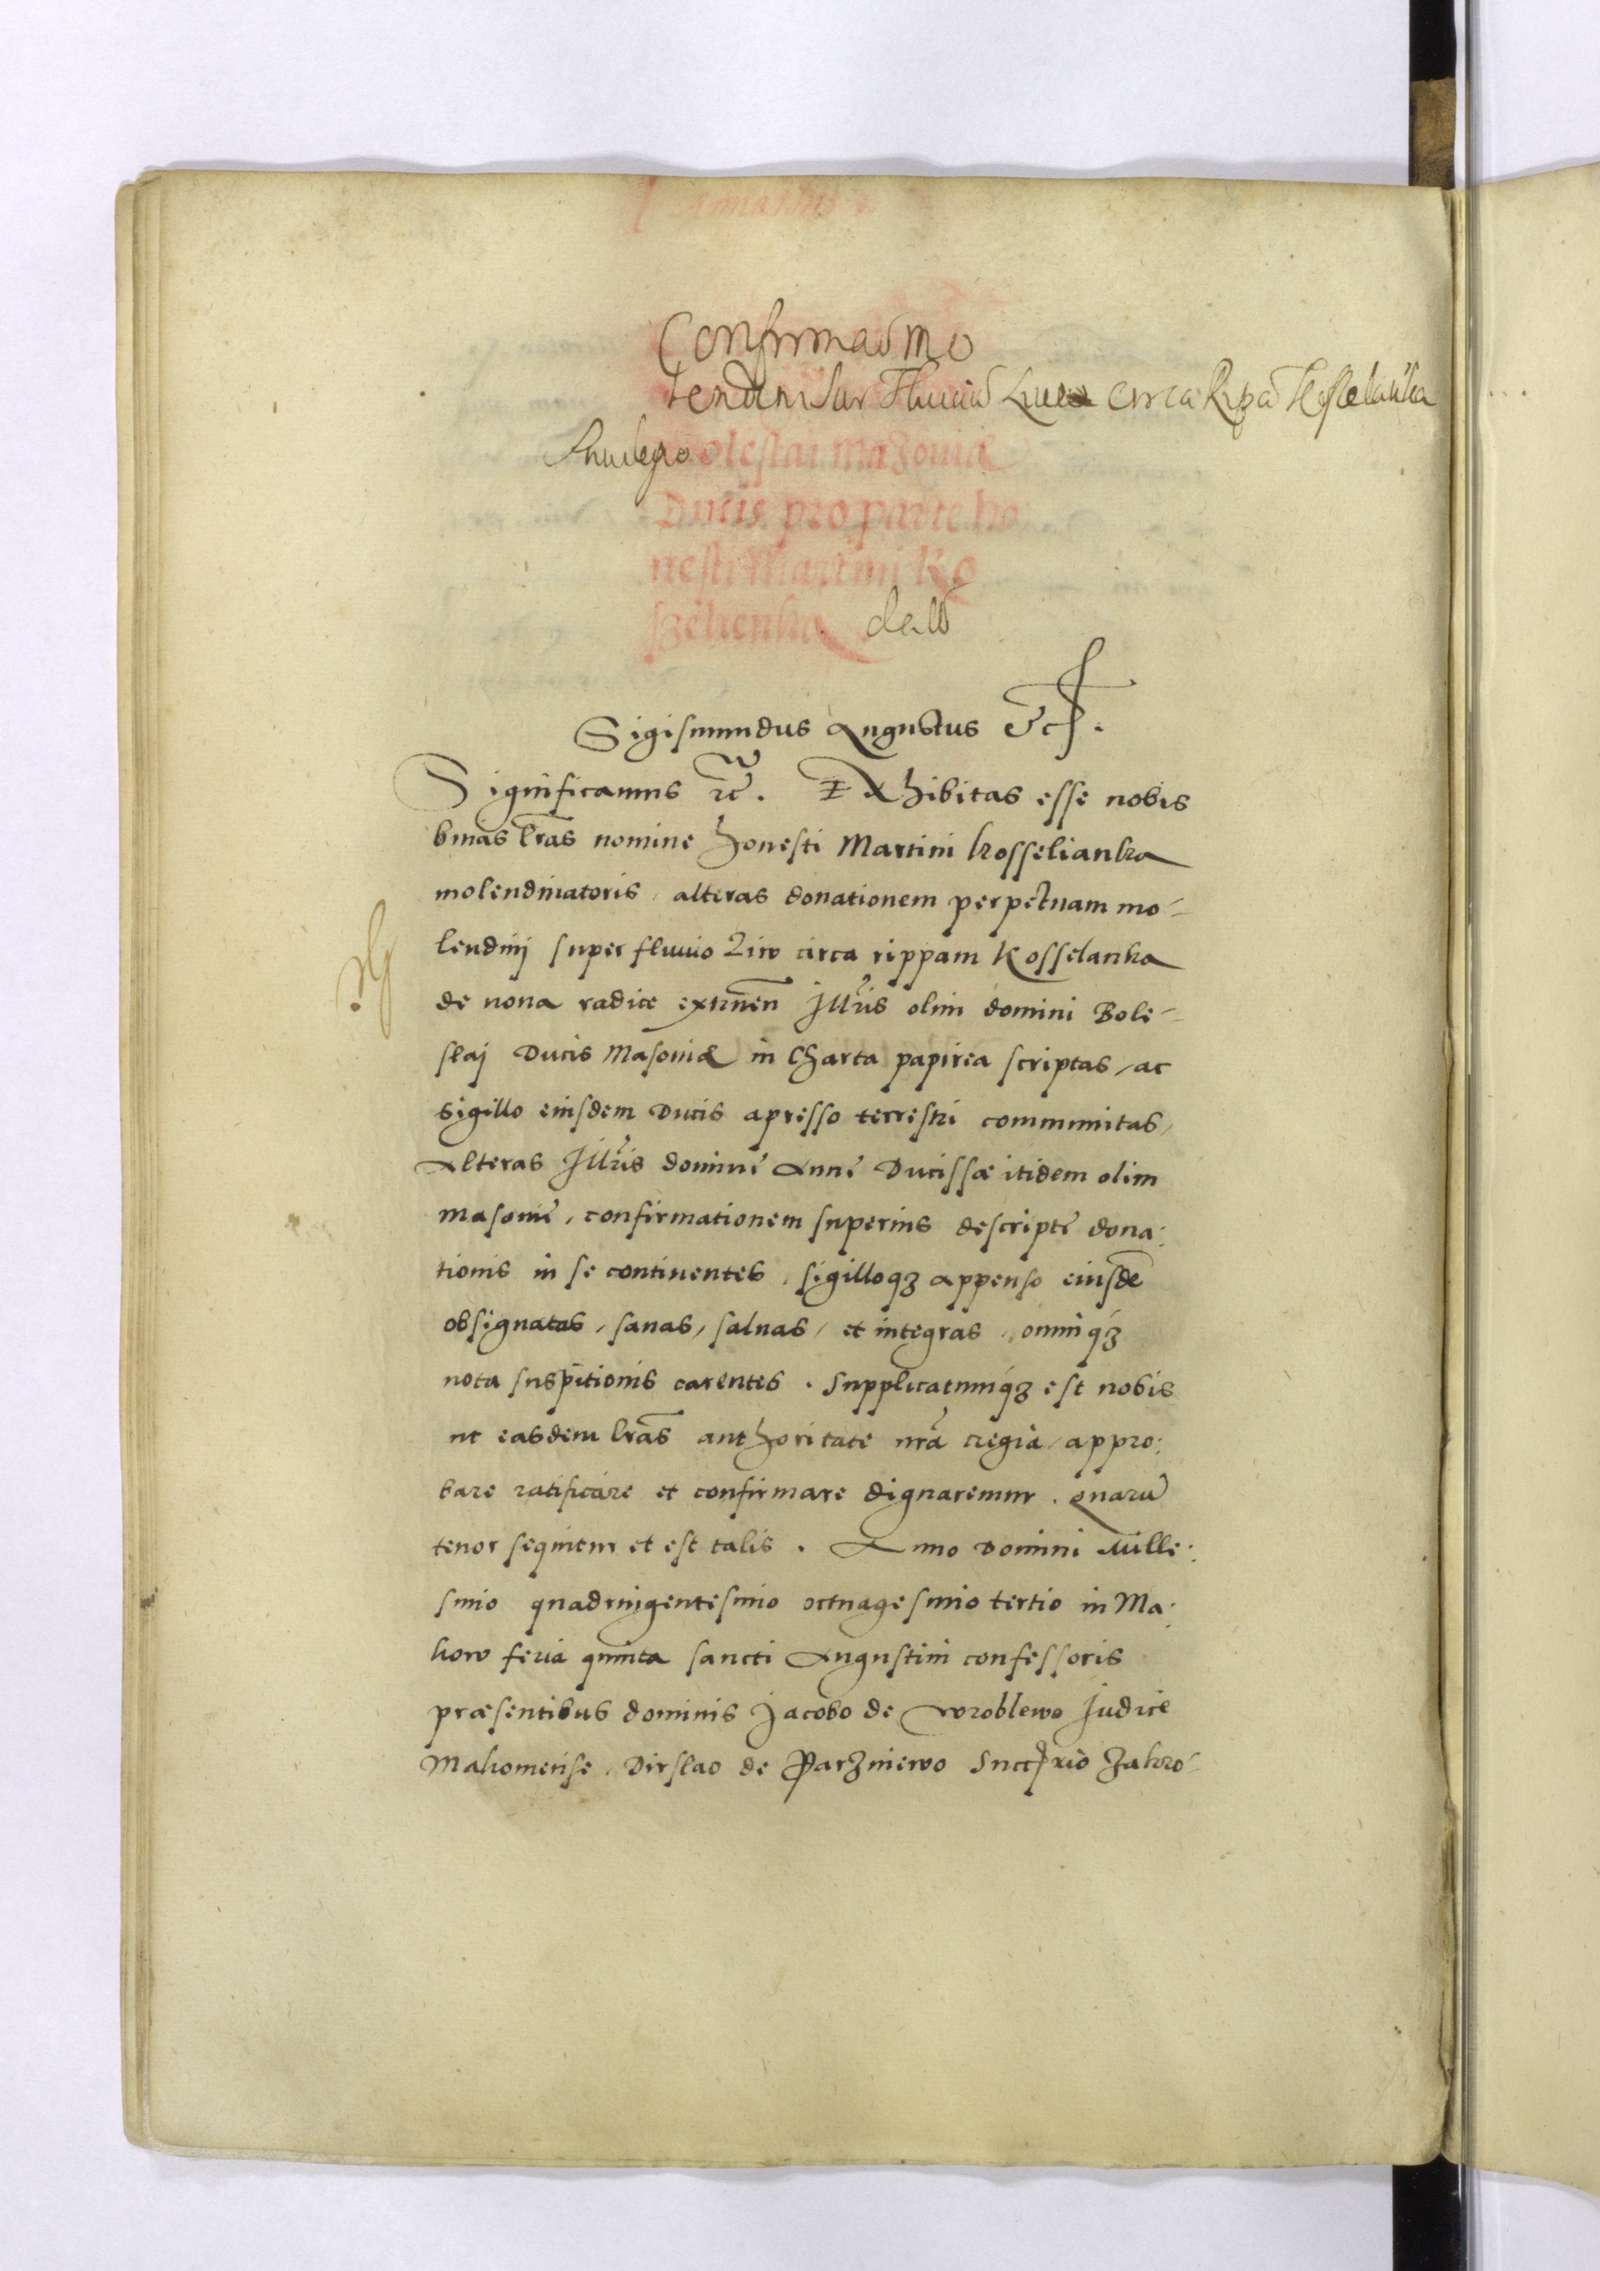 Confirmatio
Bolestai Mazoniæ
Ducis pro parte ho
nesti Martini Ko
szelienka
Sigismundus Augustus Etc.
Significamus etc. Exhibitas esse nobis
binas lrãs nomine honesti Martini kosselianka
molendinatoris, alteras donationem perpetuam mo-
lendinj super fluuio Liw circa rippam Kosselanka
de noua radice extruen̄ Illr̃is olim domini Bole-
slaj Ducis Masouiæ in Charta papirea scriptas, ac
sigillo eiusdem Ducis apresso terrestri communitas,
Alteras Illr̃is dominę Annę Ducissæ itidem olim
masouię, confirmationem superius descriptę dona:
tionis in se continentes, sigilloq3 appenso eiusdē
obsignatas, sanas, saluas, et integras, omniq3
nota suspitionis carentes. Supplicatumq3 est nobis
ut easdem lrãs authoritate nrã regia, appro:
bare ratificare et confirmare dignaremur. Quarū
tenor sequitur et est talis. Anno Domini Mille:
simo quadringentesimo octuagesimo tertio in Ma:
kow feria quinta sancti Augustini confessoris
præsentibus dominis Jacobo de Wroblewo Judice
Makomense, Dirslao de Parzniewo Zakro-